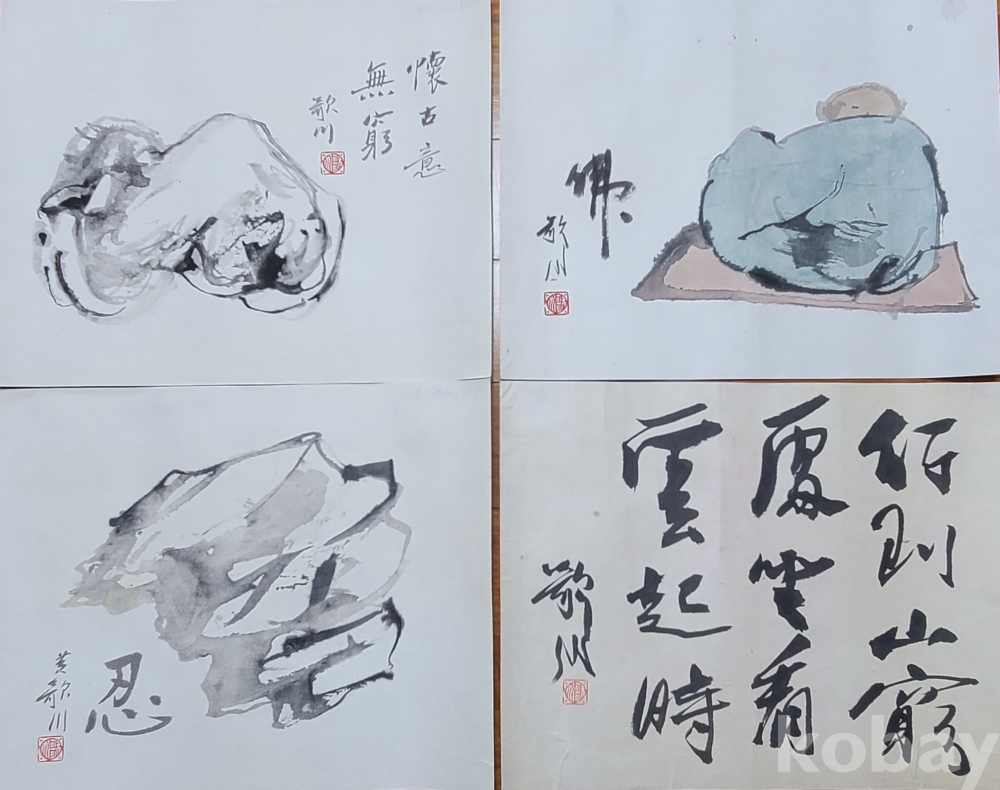 懷古意
無窮
歌川
佛
歌川
忍
黃歌川
行到山窮
處坐看
雲起時
歌川
kobay